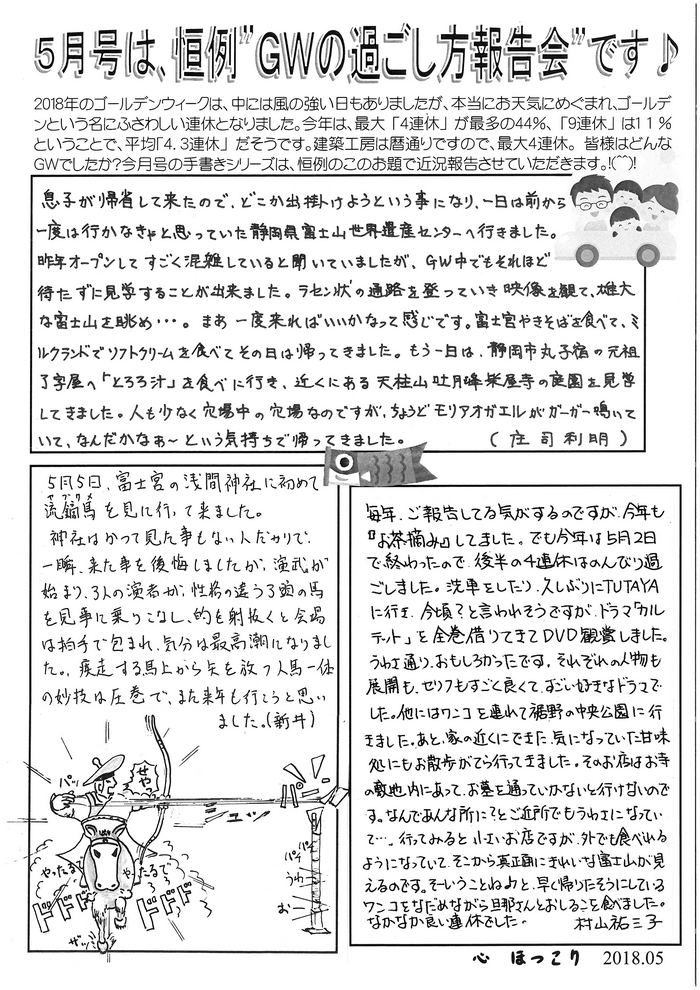 5月号は、恒例”GWの過ごし方報告会”です♪
2018年のゴールデンウィークは、中には風の強い日もありましたが、本当にお天気にめぐまれ、ゴールデ
ンという名にふさわしい連休となりました。今年は、最大「4連休」が最多の44%、「9連休」は11%
ということで、平均「4.3連休」だそうです。建築工房は暦通りですので、最大4連休。皆様はどんな
GWでしたか?今月号の手書きシリーズは、恒例のこのお題で近況報告させていただきます。!(^^)!
息子が帰省して来たので、どこか出掛けようという事になり、一日は前から
一度は行かなきゃと思っていた静岡県富士山世界遺産センターへ行きました。
昨年オープンしてすごく混雑していると聞いていましたが、GW中でもそれほど
待たずに見学することが出来ました。ラセン状の通路を登っていき映像を観て、雄大
な富士山を眺め・・・。まあ一度来ればいいかなって感じです。富士宮やきそばを食べて、ミ
ルクランドでソフトクリームを食べてその日は帰ってきました。もう一日は、静岡市丸子宿の元祖
丁字屋へ「とろろ汁」を食べに行き、近くにある天柱山吐月峰柴屋寺の庭園を見学
してきました。人も少なく穴場中の穴場なのですが、ちょうどモリアオガエルがガーガー鳴いて
いて、なんだかなぁ〜という気持ちで帰ってきました。(庄司利明)
5月5日、富士宮の浅間神社に初めて
流鏑馬を見に行って来ました。
ヤブサメ
神社はかつて見た事もない人だかりで、
一瞬、来た事を後悔しましたが、演武が
始まり、3人の演者が、性格の違う3頭の馬
を見事に乗りこなし、的を射抜くと会場
は拍手で包まれ、気分は最高潮になりまし
た。疾走する馬上から矢を放つ人馬一体
の妙技は圧巻で、また来年も行こうと思い
ました。(新井)
せや
パッ
ピュッ
やったるで
やったるで
ドドド
ドドド
ザッ
パチ
パチ
うわー
おー
毎年、ご報告してる気がするのですが、今年も
『お茶摘み』しました。でも今年は5月2日
で終わったので、後半の4連休はのんびり過
ごしました。洗車をしたり、久しぶりにTUTAYA
に行き、今頃?と言われそうですが、ドラマ「カル
テット」を全巻借りてきてDVD観賞しました。
うわさ通り、おもしろかったです。それぞれの人物も
展開も、セリフもすごく良くて、すごい好きなドラマで
した。他にはワンコを連れて裾野の中央公園に行
きました。あと、家の近くにできた、気になっていた甘味
処にもお散歩がてら行ってきました。そのお店はお寺
の敷地内にあって、お墓を通っていかないと行けないので
す。なんであんな所に?とご近所でもうわさになってい
て…。行ってみると小さいお店ですが、外でも食べれる
ようになっていて、そこから真正面にきれいな富士山が見
えるのです。そーいうことね♪と、早く帰りたそうにしている
ワンコをなだめながら旦那さんとおしるこを食べました。
なかなか良い連休でした。 村山祐三子
心 ほっこり 2018.05